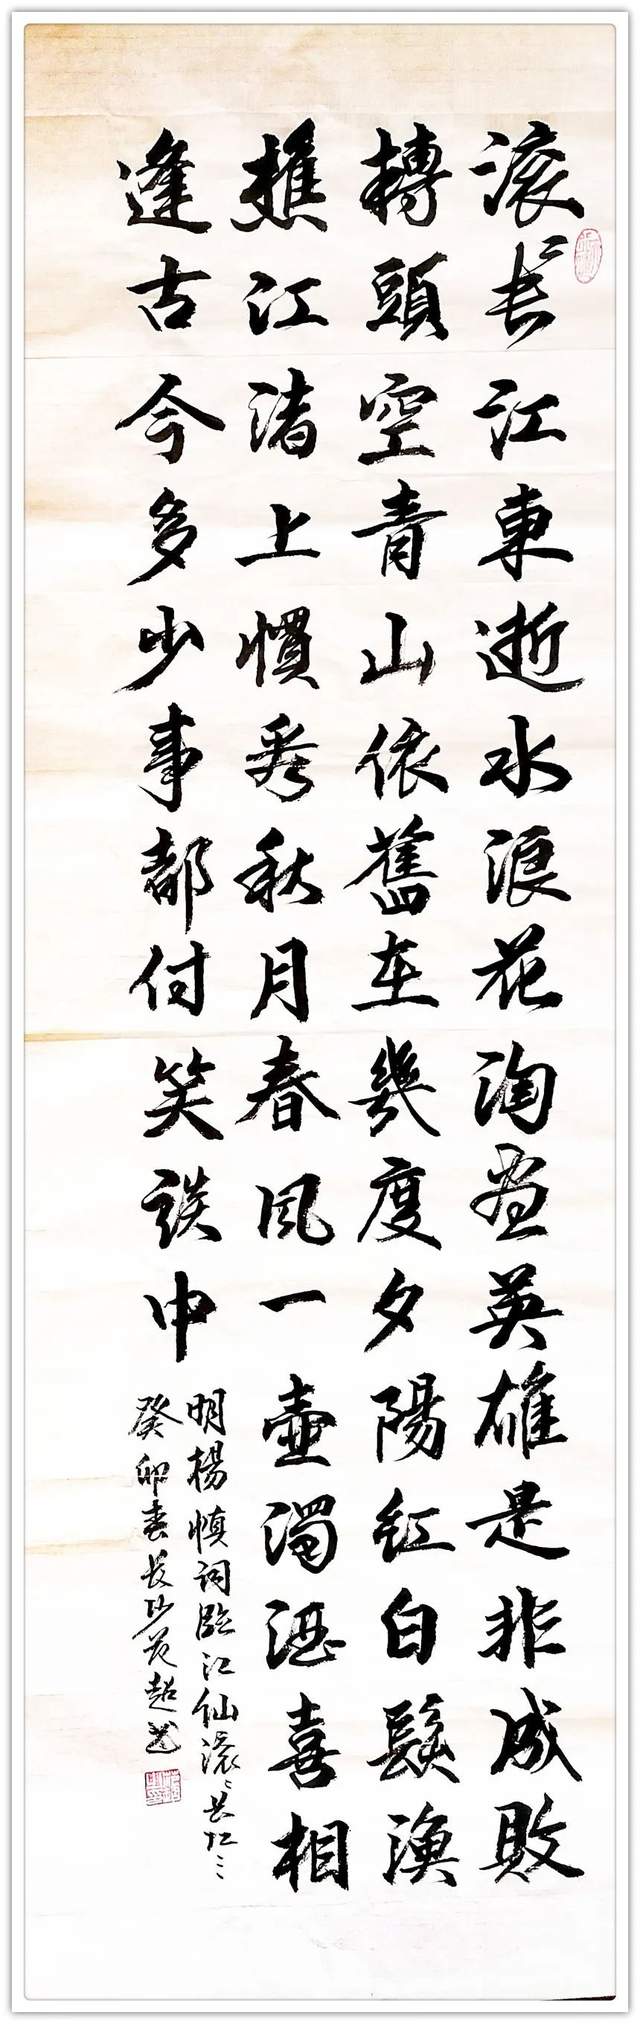 滚〻長江東逝水浪花淘盡英雄是非成敗
轉頭空青山依舊在幾度夕陽紅白髮漁
樵江渚上慣看秋月春風一壺濁酒喜相
逢古今多少事都付笑談中
明楊慎詞臨江仙滾〻長江〻
癸卯春長沙范超书